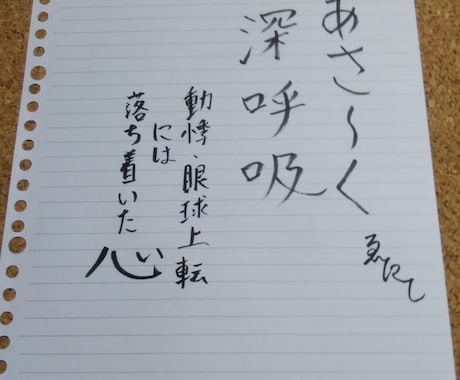 あさ〜く
深呼吸
動悸、眼球上転
には
落ち着いた
心